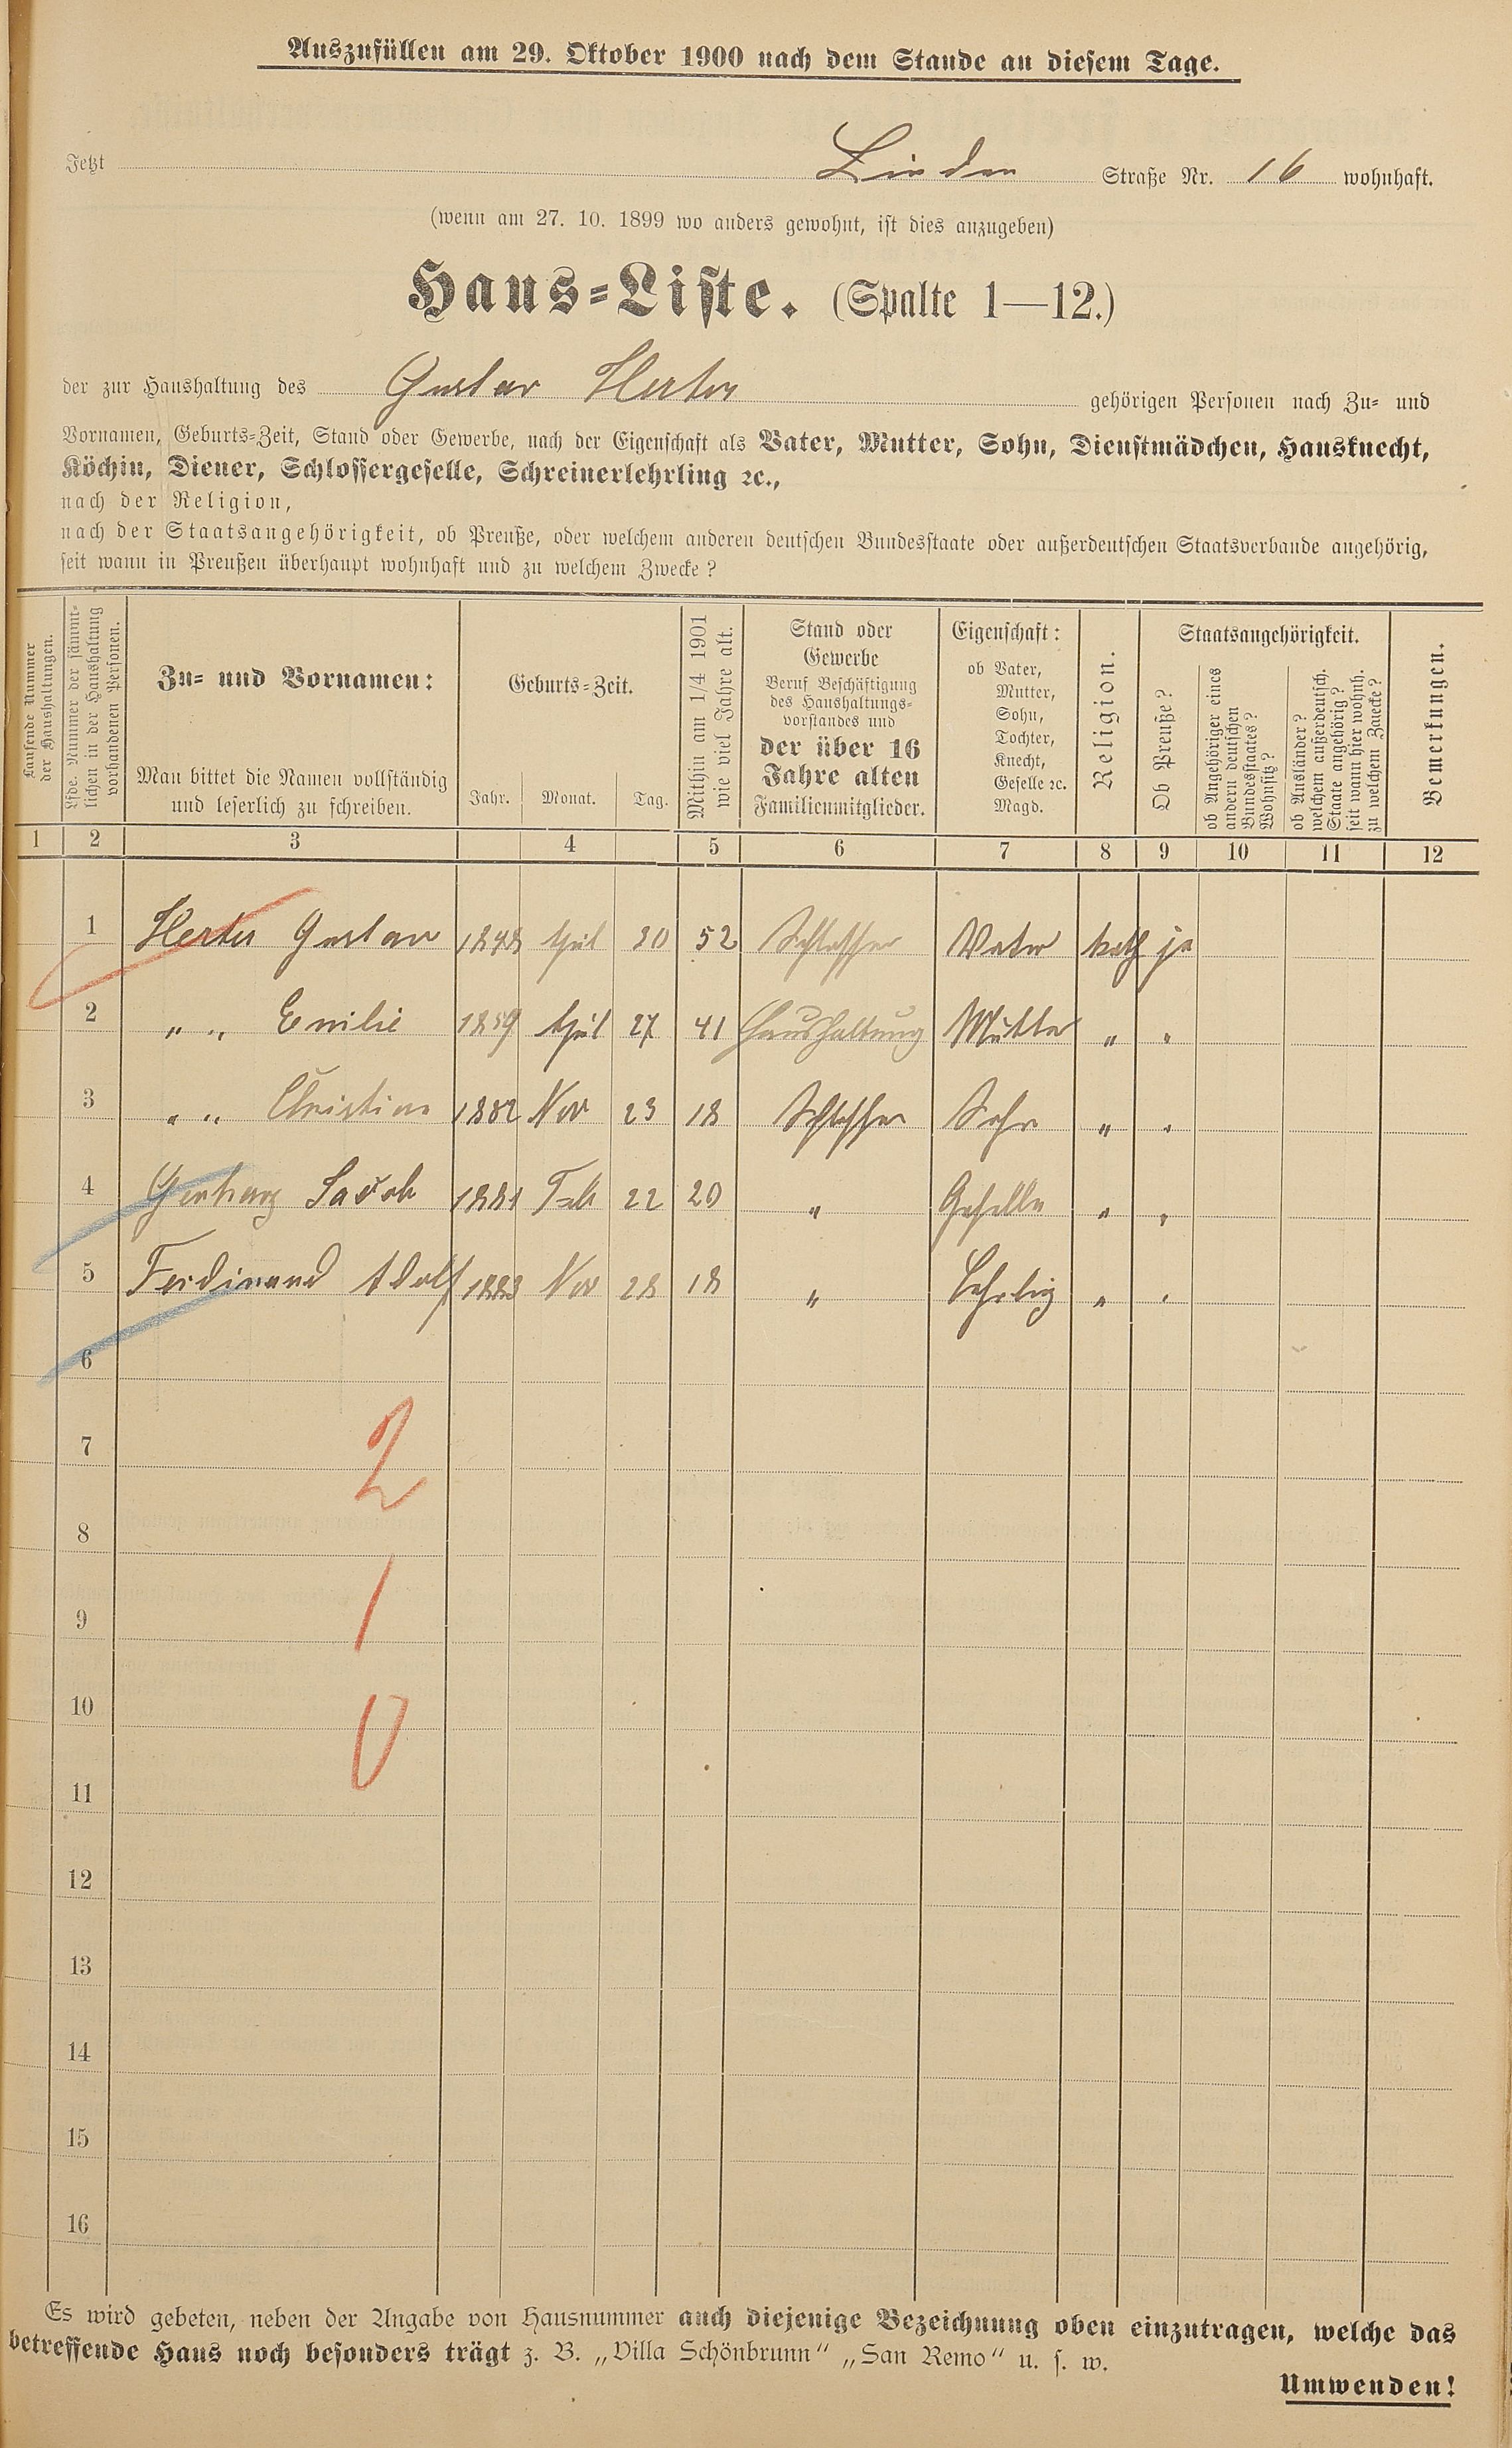 Auszufüllen am 29. Oktober 1900 nach dem Stande an diesem Tage.
Jetzt Linden Straße Nr. 16 wohnhaft.
(wenn am 27. 10. 1899 wo anders gewohnt, ist dies anzugeben)
Haus=Liste. (Spalte 1—12.)
der zur Haushaltung des Gustav Herter gehörigen Personen nach Zu= und
Vornamen, Geburts=Zeit, Stand oder Gewerbe, nach der Eigenschaft als Vater, Mutter, Sohn, Dienstmädchen, Hausknecht,
Köchin, Diener, Schlossergeselle, Schreinerlehrling ꝛc.,
nach der Religion,
nach der Staatsangehörigkeit, ob Preuße, oder welchem anderen deutschen Bundesstaate oder außerdeutschen Staatsverbande angehörig,
seit wann in Preußen überhaupt wohnhaft und zu welchem Zwecke?
Laufende Nummer
der Haushaltungen.
Lfde. Nummer der sämmt=
lichen in der Haushaltung
vorhandenen Personen.
Zu= und Vornamen:
Man bittet die Namen vollständig
und leserlich zu schreiben.
Geburts=Zeit.
Jahr. Monat. Tag.
Mithin am 1/4 1901
wie viel Jahre alt.
Stand oder
Gewerbe
Beruf Beschäftigung
des Haushaltungs=
vorstandes und
der über 16
Jahre alten
Familienmitglieder.
Eigenschaft:
ob Vater,
Mutter,
Sohn,
Tochter,
Knecht,
Geselle ꝛc.
Magd.
Religion.
Staatsangehörigkeit.
Ob Preuße?
ob Angehöriger eines
andern deutschen
Bundesstaates?
Wohnsitz?
ob Ausländer?
welchem außerdeutsch.
Staate angehörig?
seit wann hier wohnh.
zu welchem Zwecke?
Bemerkungen.
1 2 3 4 5 6 7 8 9 10 11 12
1 Herter Gustav 1848 April 30 52 Schlosser Vater kath ja
2 „ „ Emilie 1859 April 27 41 Haushaltung Mutter „ „
3 „ „ Christian 1882 Nov 23 18 Schlosser Sohn „ „
4 Jacob 1881 Feb 22 20 „ Geselle „ „
5 Ferdinand Adolf 1883 Nov 28 18 „ Lehrlig „ „
6
7
2
8
9
1
10
0
11
12
13
14
15
16
Es wird gebeten, neben der Angabe von Hausnummer auch diejenige Bezeichnung oben einzutragen, welche das
betreffende Haus noch besonders trägt z. B. „Villa Schönbrunn“ „San Remo“ u. s. w.
Umwenden!